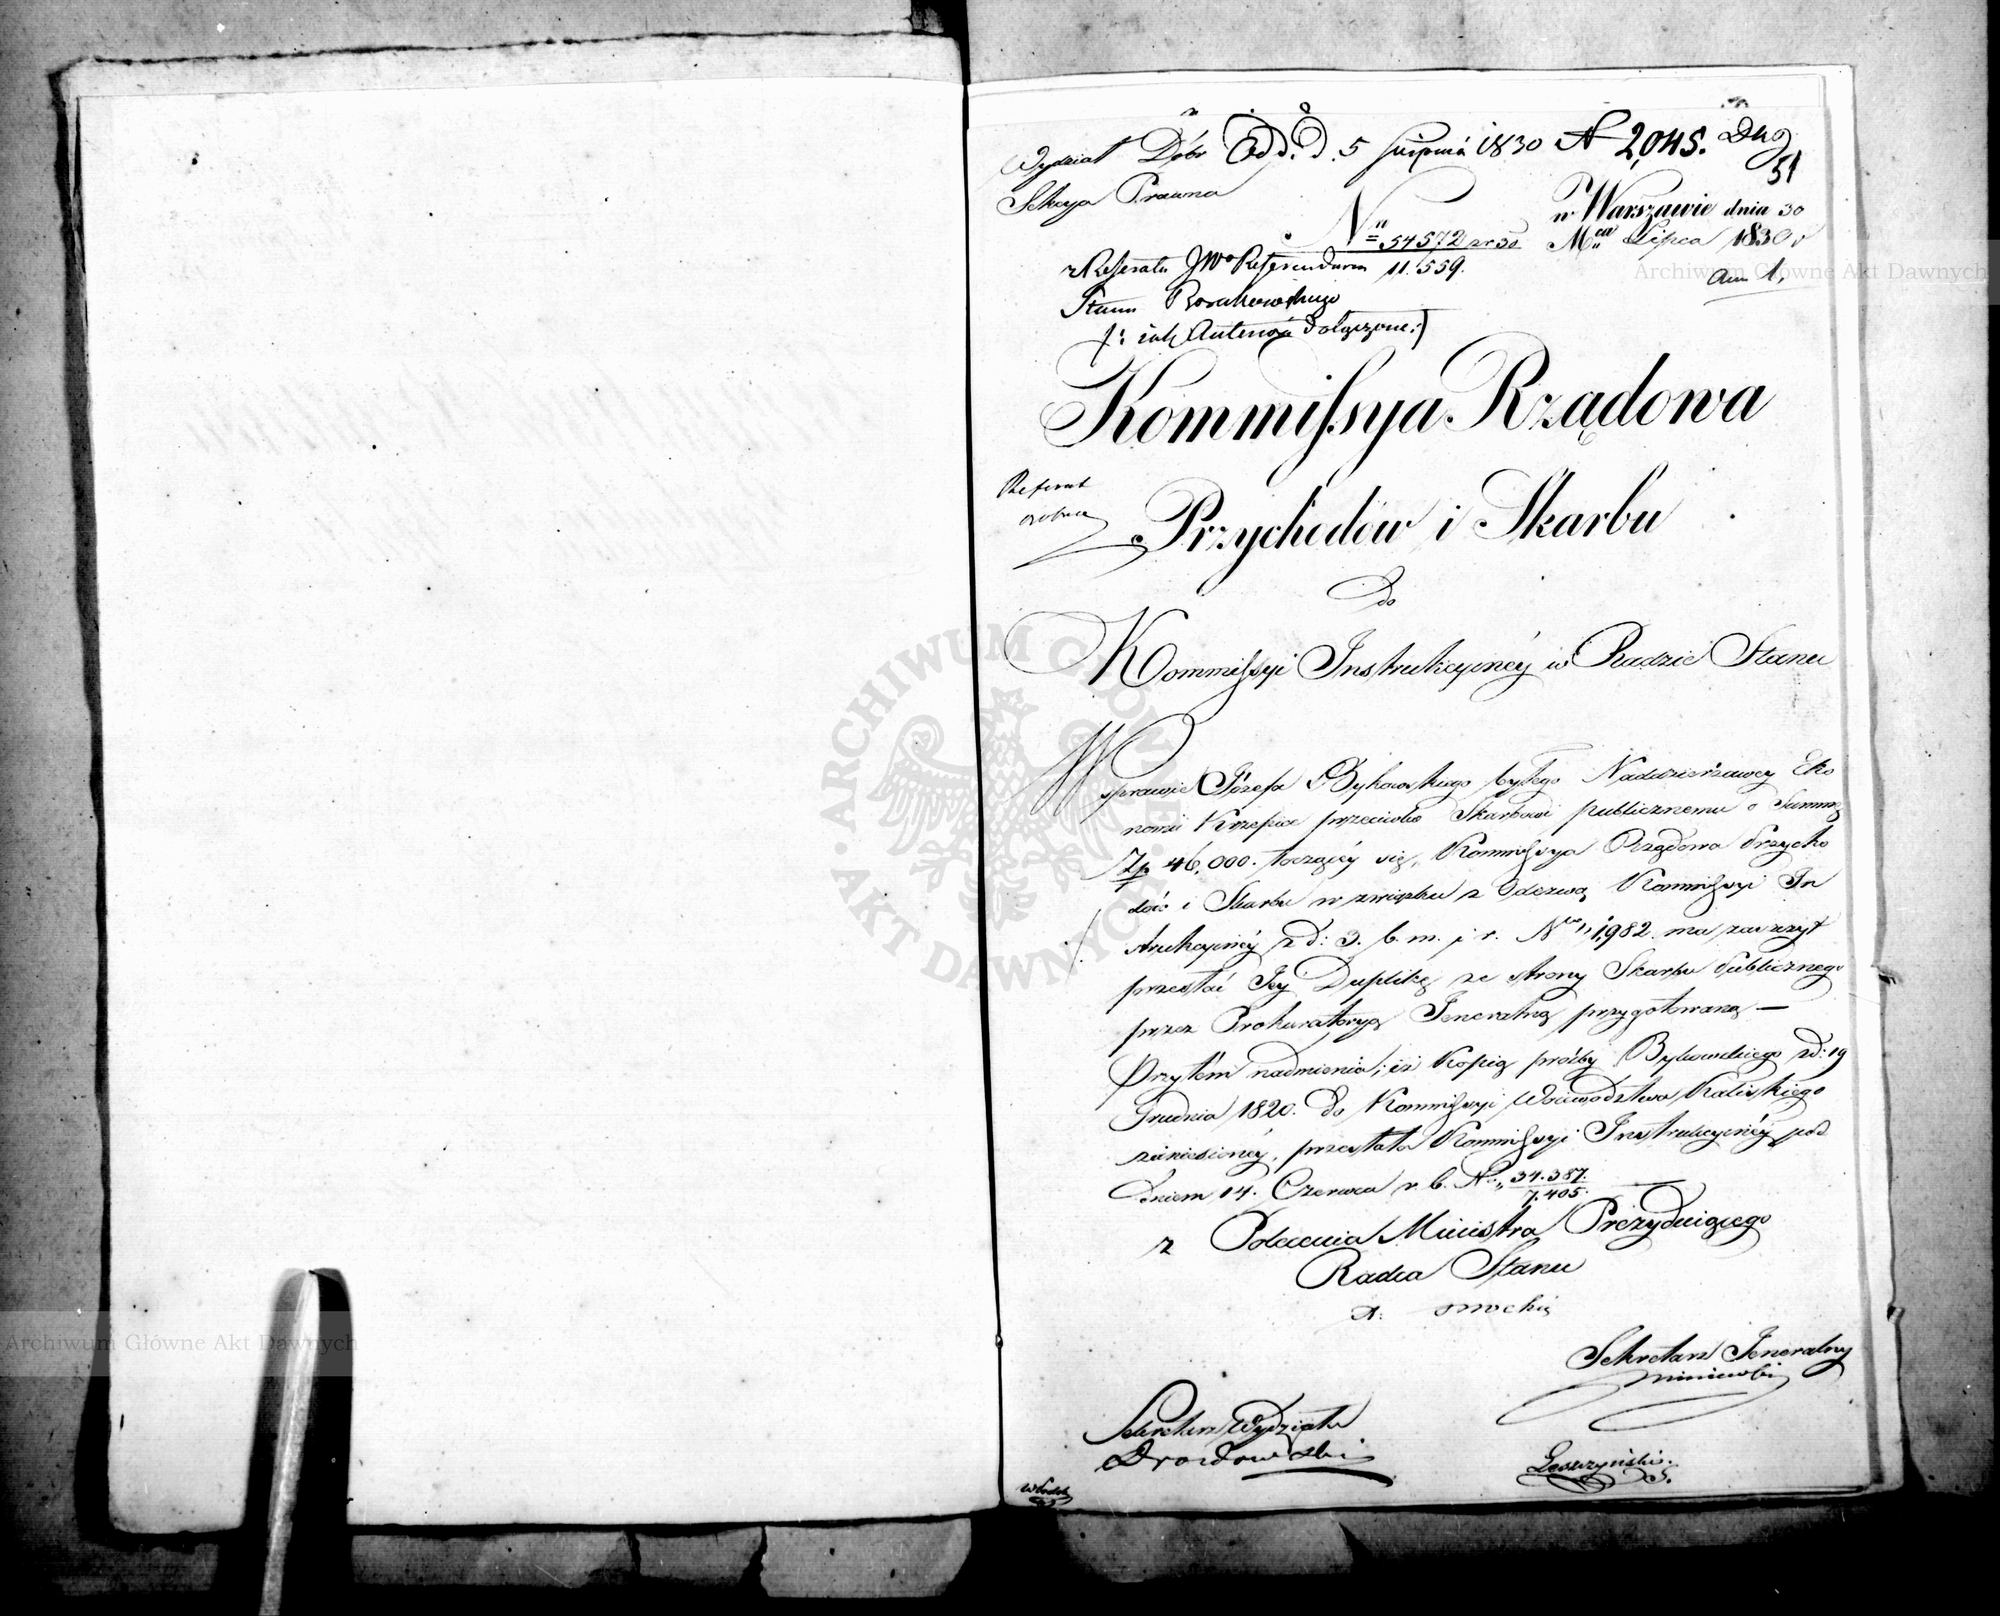 Wydział Dóbr Od d. d. 5 Sierpnia 1830 N 2,045. Dup
51
Sekcya Prawna
w Warszawie dnia 30
No 54572 Mca Lipca 1830 r
z Referatu JWo Referendarza 11.559.
Ann 1.
Stanu
Kommissya Rządowa
Referat
Przychodów i Skarbu
do
Kommissyi Instrukcyinéy w Radzie Stanu
W sprawie Józefa Bykowskiego byłego Naddzierżawcy Eko
nomii Krzepice przeciwko Skarbowi publicznemu o Summę
Zp 46,000. toczącéy się, Kommissya Rządowa Przycho
dów i Skarbu w związku z Odezwą Kommissyi In
strukcyinéy z d: 3. b. m. i r. Nro 1,982. ma zaszczyt
przesłać Jéy Duplikę ze strony Skarbu Publicznego
przez Prokuratoryą Jeneralną przygotowaną —
Przytém nadmienia, iż Kopią prośby Bykowskiego z d: 19
Grudnia 1820. do Kommissyi Woiewództwa Kaliskiego
zaniesionéy, przesłała Kommissyi Instrukcyinéy pod
dniem 14. Czerwca r. b. No. 34.387.
7.405.
z Polecenia Ministra Prezyduiącego
Radca Stanu
Sekretarz Jeneralny
Sekretarz Wydziału
Drozdowski
Leszczyński.
ARCHIWUM GŁÓWNE AKT DAWNYCH
Archiwum Główne Akt Dawnych
Archiwum Główne Akt Dawnych